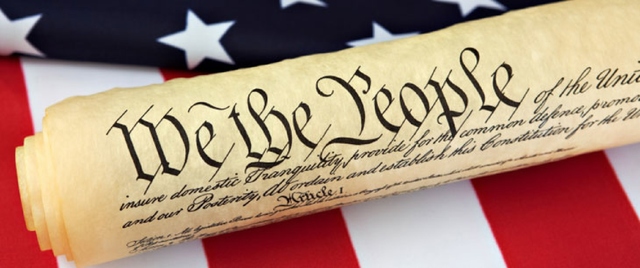 We the People of the Unit
insure domestic Tranquility, provide for the common defence, promo
and our Posterity, do ordain and establish this Constitution for the Un
Article I